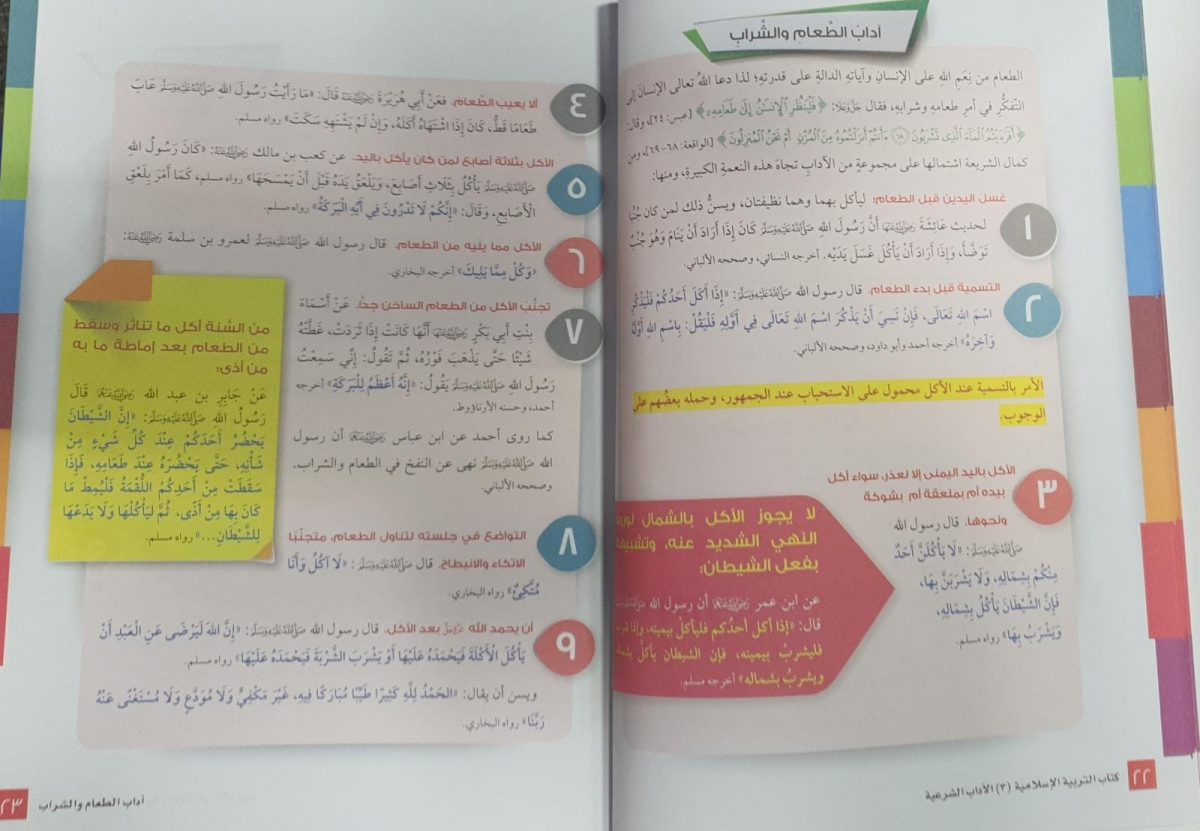 آدابُ الطَّعامِ والشَّرابِ
الطعام من نِعَمِ الله على الإنسانِ وآياتِهِ الدالةِ على قدرتِهِ؛ لذا دعا اللهُ تعالى الإنسانَ إلى
التفكُّرِ في أمرِ طعامِهِ وشرابِهِ، فقال جَلَّ وَعَلَا: ﴿فَلْيَنظُرِ ٱلْإِنسَٰنُ إِلَىٰ طَعَامِهِۦٓ﴾ [عبس: ٢٤]، وقال:
﴿أَفَرَءَيْتُمُ ٱلْمَآءَ ٱلَّذِى تَشْرَبُونَ ۝٦٨ ءَأَنتُمْ أَنزَلْتُمُوهُ مِنَ ٱلْمُزْنِ أَمْ نَحْنُ ٱلْمُنزِلُونَ﴾ [الواقعة: ٦٨-٦٩]، ومن
كمال الشريعة اشتمالها على مجموعةٍ من الآدابِ تجاهَ هذه النعمةِ الكبيرةِ، ومنها:
١
غسل اليدين قبل الطعام: ليأكل بهما وهما نظيفتان، ويسنُّ ذلك لمن كان جُنُبًا
لحديث عَائِشَةَ رَضِيَ اللَّهُ عَنْهَا أَنَّ رَسُولَ اللهِ صَلَّى اللَّهُ عَلَيْهِ وَسَلَّمَ كَانَ إِذَا أَرَادَ أَنْ يَنَامَ وَهُوَ جُنُبٌ
تَوَضَّأَ، وَإِذَا أَرَادَ أَنْ يَأْكُلَ غَسَلَ يَدَيْهِ. أخرجه النسائي، وصححه الألباني.
٢
التسمية قبل بدء الطعام. قال رسول الله صَلَّى اللَّهُ عَلَيْهِ وَسَلَّمَ: «إِذَا أَكَلَ أَحَدُكُمْ فَلْيَذْكُرِ
اسْمَ اللهِ تَعَالَى، فَإِنْ نَسِيَ أَنْ يَذْكُرَ اسْمَ اللهِ تَعَالَى فِي أَوَّلِهِ فَلْيَقُلْ: بِاسْمِ اللهِ أَوَّلَهُ
وَآخِرَهُ» أخرجه أحمد وأبو داود، وصححه الألباني.
الأمر بالتسمية عند الأكل محمول على الاستحباب عند الجمهور، وحمله بعضُهم على
الوجوب.
٣
الأكل باليد اليمنى إلا لعذر، سواء أكل
بيده أم بملعقة أم بشوكة
ونحوها. قال رسول الله
صَلَّى اللَّهُ عَلَيْهِ وَسَلَّمَ: «لَا يَأْكُلَنَّ أَحَدٌ
مِنْكُمْ بِشِمَالِهِ، وَلَا يَشْرَبَنَّ بِهَا،
فَإِنَّ الشَّيْطَانَ يَأْكُلُ بِشِمَالِهِ،
وَيَشْرَبُ بِهَا» رواه مسلم.
لا يجوز الأكل بالشمال لورود
النهي الشديد عنه، وتشبيهه
بفعل الشيطان:
عن ابن عمر رَضِيَ اللَّهُ عَنْهُمَا أن رسول الله صَلَّى اللَّهُ عَلَيْهِ وَسَلَّمَ
قال: «إذا أكل أحدُكم فليأكلْ بيمينِه، وإذا شربَ
فليشربْ بيمينه، فإن الشيطان يأكلُ بشماله
ويشربُ بشماله» أخرجه مسلم.
٢٢
كتاب التربية الإسلامية (٣) الآداب الشرعية
٤
ألا يعيب الطَّعام. فعَنْ أَبِي هُرَيْرَةَ رَضِيَ اللَّهُ عَنْهُ قَالَ: «مَا رَأَيْتُ رَسُولَ اللهِ صَلَّى اللَّهُ عَلَيْهِ وَسَلَّمَ عَابَ
طَعَامًا قَطُّ، كَانَ إِذَا اشْتَهَاهُ أَكَلَهُ، وَإِنْ لَمْ يَشْتَهِهِ سَكَتَ» رواه مسلم.
٥
الأكل بثلاثة أصابع لمن كان يأكل باليد. عن كعب بن مالك رَضِيَ اللَّهُ عَنْهُ: «كَانَ رَسُولُ اللهِ
صَلَّى اللَّهُ عَلَيْهِ وَسَلَّمَ يَأْكُلُ بِثَلَاثِ أَصَابِعَ، وَيَلْعَقُ يَدَهُ قَبْلَ أَنْ يَمْسَحَهَا» رواه مسلم، كَمَا أَمَرَ بِلَعْقِ
الْأَصَابِعِ، وَقَالَ: «إِنَّكُمْ لَا تَدْرُونَ فِي أَيِّهِ الْبَرَكَةُ» رواه مسلم.
٦
الأكل مما يليه من الطعام. قال رسول الله صَلَّى اللَّهُ عَلَيْهِ وَسَلَّمَ لعمرو بن سلمة رَضِيَ اللَّهُ عَنْهُ:
«وَكُلْ مِمَّا يَلِيكَ» أخرجه البخاري.
٧
تجنُّب الأكل من الطعام الساخن جدًّا. عَنْ أَسْمَاءَ
بِنْتِ أَبِي بَكْرٍ رَضِيَ اللَّهُ عَنْهَا أَنَّهَا كَانَتْ إِذَا ثَرَدَتْ، غَطَّتْهُ
شَيْئًا حَتَّى يَذْهَبَ فَوْرُهُ، ثُمَّ تَقُولُ: إِنِّي سَمِعْتُ
رَسُولَ اللهِ صَلَّى اللَّهُ عَلَيْهِ وَسَلَّمَ يَقُولُ: «إِنَّهُ أَعْظَمُ لِلْبَرَكَةِ» أخرجه
أحمد، وحسنه الأرناؤوط.
كما روى أحمد عن ابن عباس رَضِيَ اللَّهُ عَنْهُمَا أن رسول
الله صَلَّى اللَّهُ عَلَيْهِ وَسَلَّمَ نهى عن النفخ في الطعام والشراب.
وصححه الألباني.
من السُّنة أكل ما تناثر وسقط
من الطعام بعد إماطة ما به
من أذى:
عَنْ جَابِرِ بن عبد الله رَضِيَ اللَّهُ عَنْهُمَا قَالَ
رَسُولُ اللهِ صَلَّى اللَّهُ عَلَيْهِ وَسَلَّمَ: «إِنَّ الشَّيْطَانَ
يَحْضُرُ أَحَدَكُمْ عِنْدَ كُلِّ شَيْءٍ مِنْ
شَأْنِهِ، حَتَّى يَحْضُرَهُ عِنْدَ طَعَامِهِ، فَإِذَا
سَقَطَتْ مِنْ أَحَدِكُمُ اللُّقْمَةُ فَلْيُمِطْ مَا
كَانَ بِهَا مِنْ أَذًى، ثُمَّ لْيَأْكُلْهَا وَلَا يَدَعْهَا
لِلشَّيْطَانِ...» رواه مسلم.
٨
التواضع في جلسته لتناول الطعام، متجنِّبًا
الاتكاء والانبطاح. قال صَلَّى اللَّهُ عَلَيْهِ وَسَلَّمَ: «لَا آكُلُ وَأَنَا
مُتَّكِئٌ» رواه البخاري.
٩
أن يحمد الله عَزَّ وَجَلَّ بعد الأكل. قال رسول الله صَلَّى اللَّهُ عَلَيْهِ وَسَلَّمَ: «إِنَّ اللهَ لَيَرْضَى عَنِ الْعَبْدِ أَنْ
يَأْكُلَ الْأَكْلَةَ فَيَحْمَدَهُ عَلَيْهَا أَوْ يَشْرَبَ الشَّرْبَةَ فَيَحْمَدَهُ عَلَيْهَا» رواه مسلم.
ويسن أن يقال: «الحَمْدُ لِلَّهِ كَثِيرًا طَيِّبًا مُبَارَكًا فِيهِ، غَيْرَ مَكْفِيٍّ وَلَا مُوَدَّعٍ وَلَا مُسْتَغْنًى عَنْهُ
رَبَّنَا» رواه البخاري.
آداب الطعام والشراب
٢٣